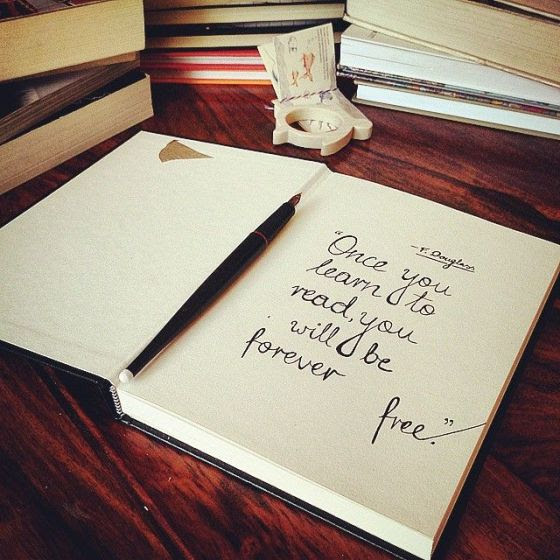 - F. Douglass
"Once you
learn to
read, you
will be
forever
free."